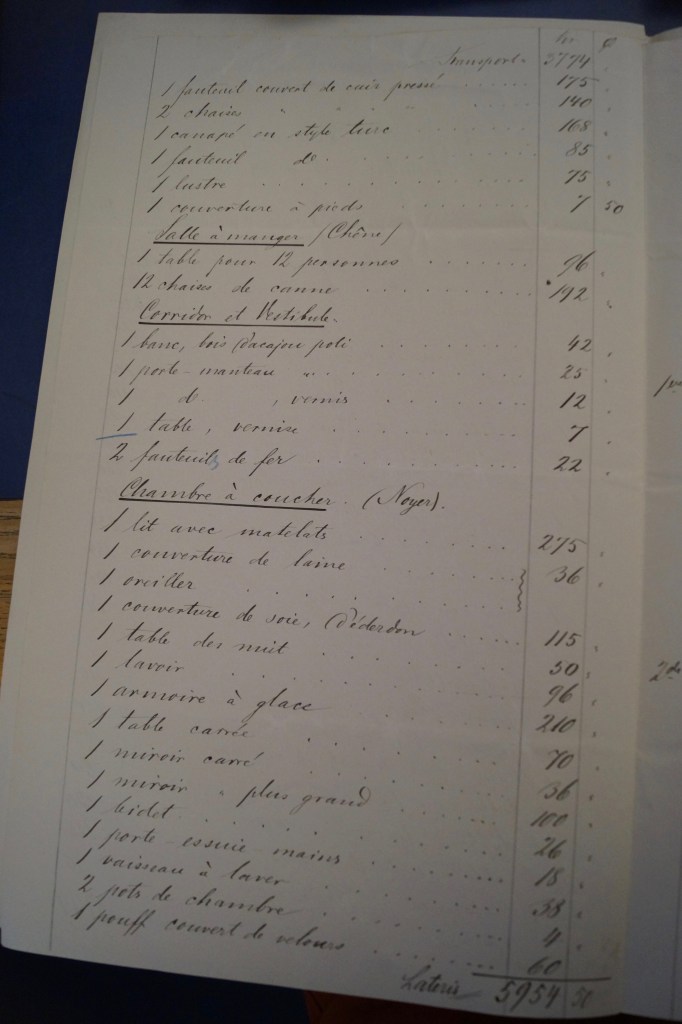 fr ct
Transport. 3774 "
1 fauteuil couvert de cuir pressé 175 "
2 chaises " " " 140 "
1 canapé en style turc 168 "
1 fauteuil do. 85 "
1 lustre 75 "
1 couverture à pieds 7 50
Salle à manger (Chêne)
1 table pour 12 personnes 96 "
12 chaises de canne 192 "
Corridor et Vestibule.
1 banc, bois d'acajou poli 42 "
1 porte-manteau " 25 "
1 do , vernis 12 "
1 table, vernise 7 "
2 fauteuils de fer 22 "
Chambre à coucher. (Noyer).
1 lit avec matelats 275 "
1 couverture de laine 36 "
1 oreiller
1 couverture de soie, d'éderdon 115 "
1 table de nuit 50 "
1 lavoir 96 "
1 armoire à glace 210 "
1 table carrée 70 "
1 miroir carré 36 "
1 miroir " plus grand 100 "
1 bidet 26 "
1 porte-essuie-mains 18 "
1 vaisseau à laver 38 "
2 pots de chambre 4 "
1 pouff couvert de velours 60 "
Lateris 5954 50